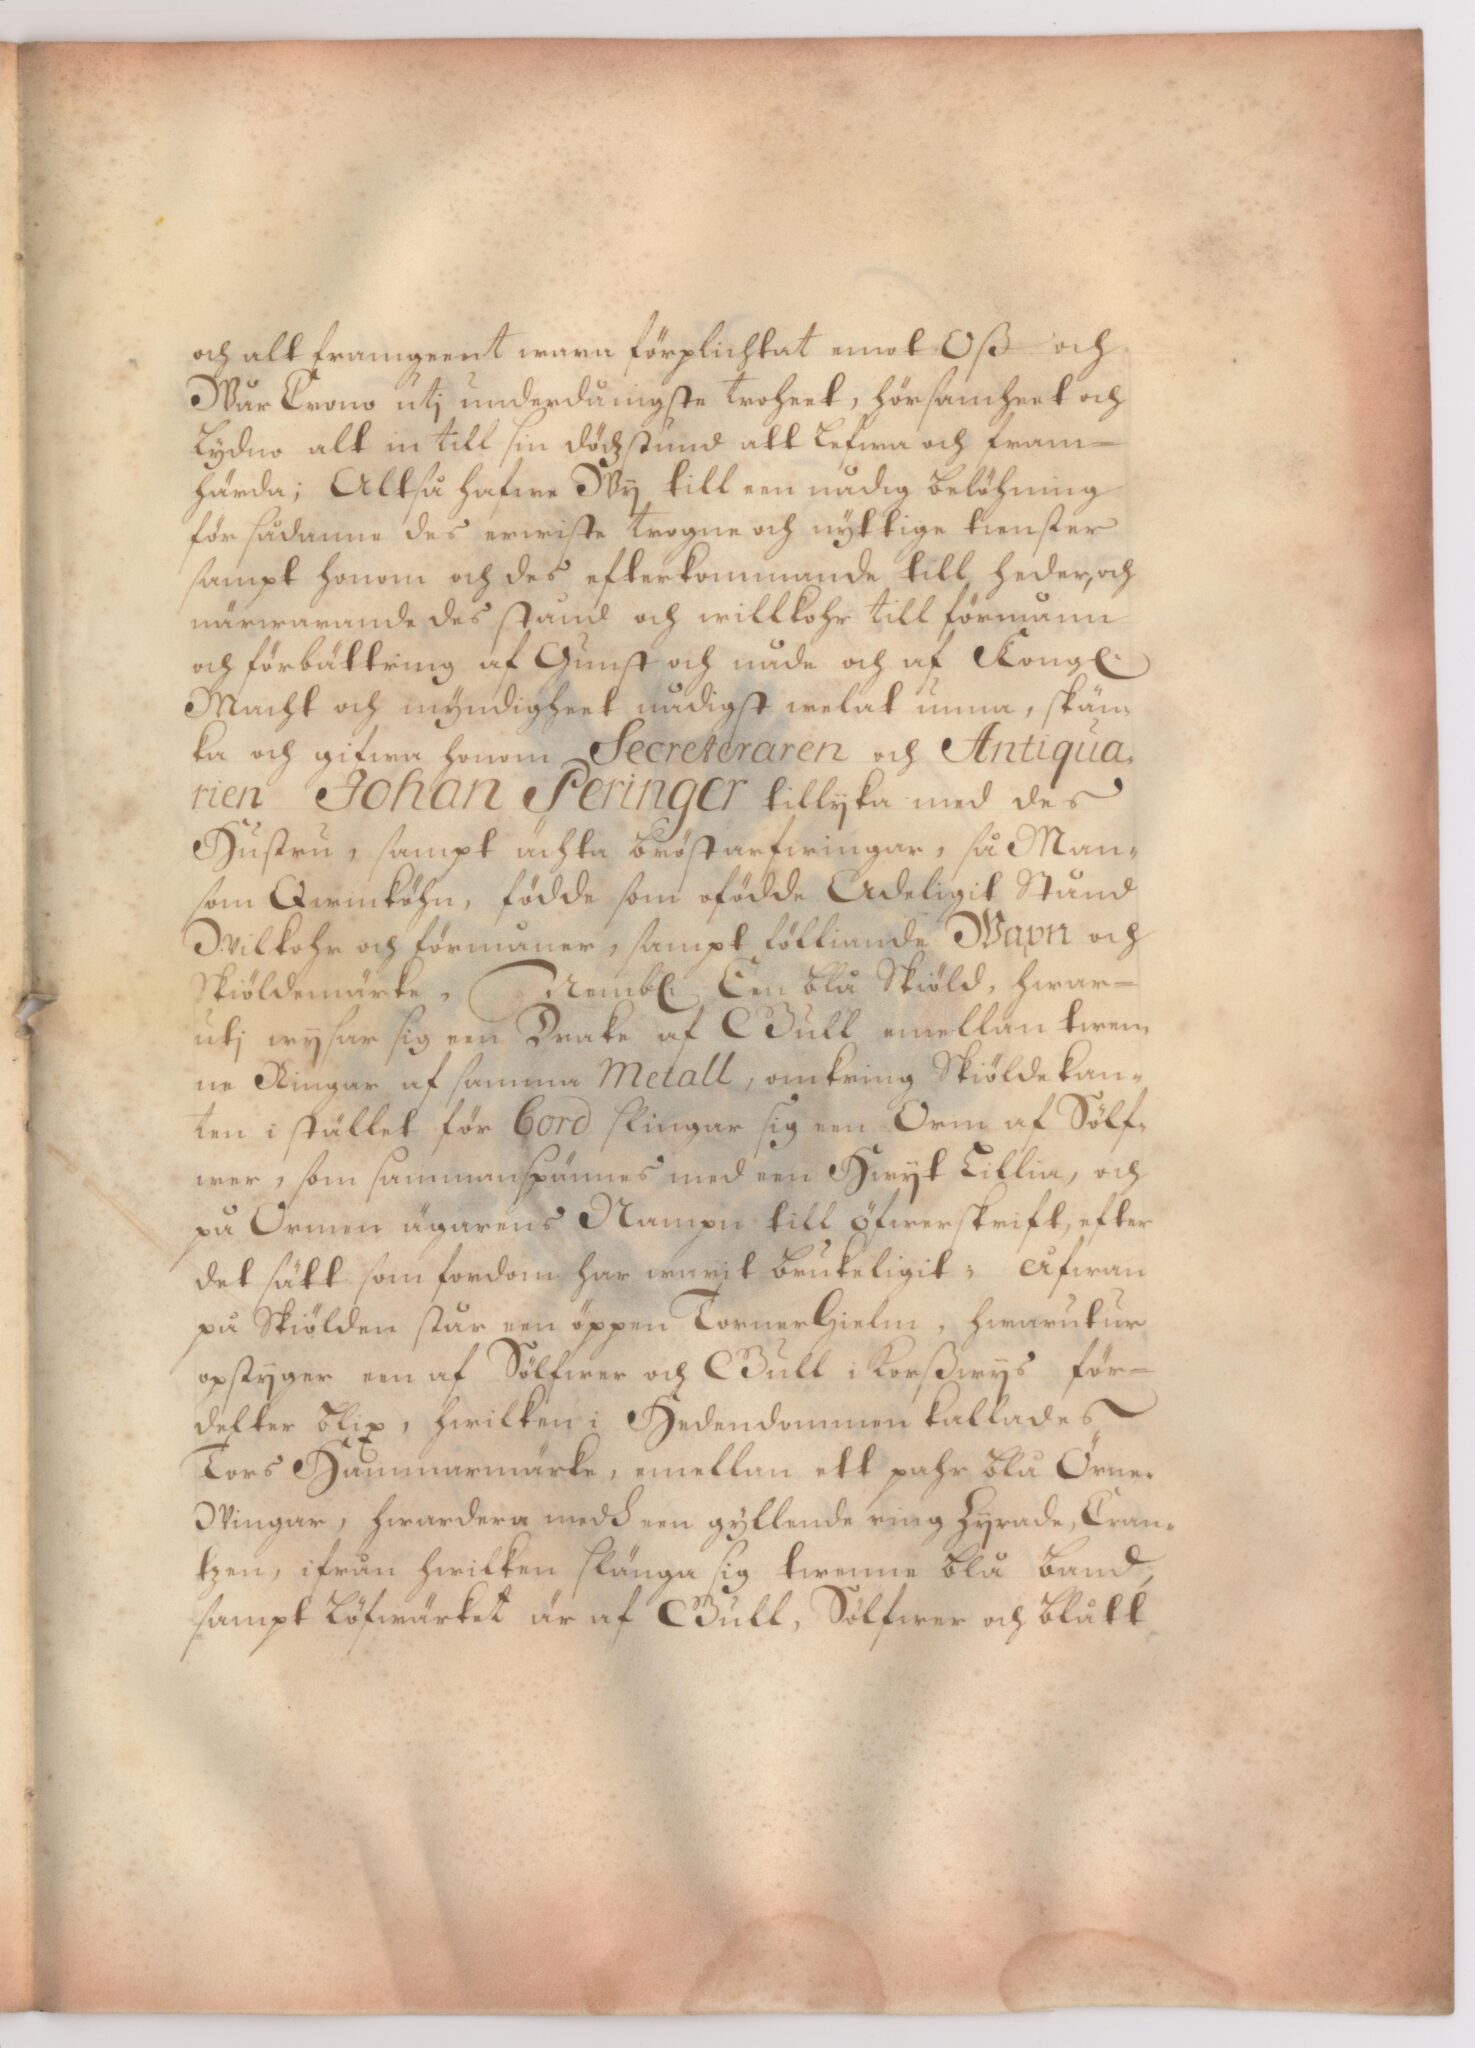 och alt framgeent wara förplichtat emot Oß och
Wår Crono utj underdånigste troheet, hörsamheet och
Lydno alt in till sin dödzstund att lefwa och fram-
härda; Altså hafwe Wy till een nådig belöhning
för sådanne des erwiste trogne och nyttige tienster
sampt honom och des efterkommande till heder, och
närwarande des stånd och willkohr till förmånn
och förbättring af Gunst och nåde och af Kongl.
Macht och myndigheet nådigst welat unna, skän-
ka och gifwa honom Secreteraren och Antiqua-
rien Johan Peringer tillyka med des
Hustru, sampt ächta bröstarfwingar, så Man-
som Qwinköhn, födde som ofödde Adeligit Stånd
Wilkohr och förmåner, sampt följiande Wapn och
Skiöldemärke, Nembl. Een blå Skiöld, hwar-
utj wysar sig een Drake af Gull emellan twen-
ne Ringar af samma Metall, omkring Skiöldekan-
ten i stället för bord slingar sig een Orm af Sölf-
wer, som sammanspännes med een Hwyt Lillia, och
på Ormen ägarens Nampn till öfwerskrift, efter
det sätt som fordom har warit brukeligit; Afwan
på Skiölden står een öppen TornerHielm, hwarutur
opstyger een af Sölfwer och Gull i Korßwys för-
delter blix, hwilken i Hedendommen kallades
Tors Hammarmärke, emellan ett pahr blå Örne-
Wingar, hwardera medh een gyllende ring Zyrade, Cran-
tzen, ifrån hwilken slänga sig twenne blå band,
sampt Löfwärket är af Gull, Sölfwer och blått